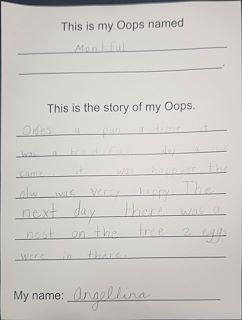 This is my Oops named
Montful
This is the story of my Oops.
a pun a time it
was a beautiful day a
came. it was happier the
olw was very happy The
next day there was a
nest on the tree 2 eggs
were in there.
My name: Angellina